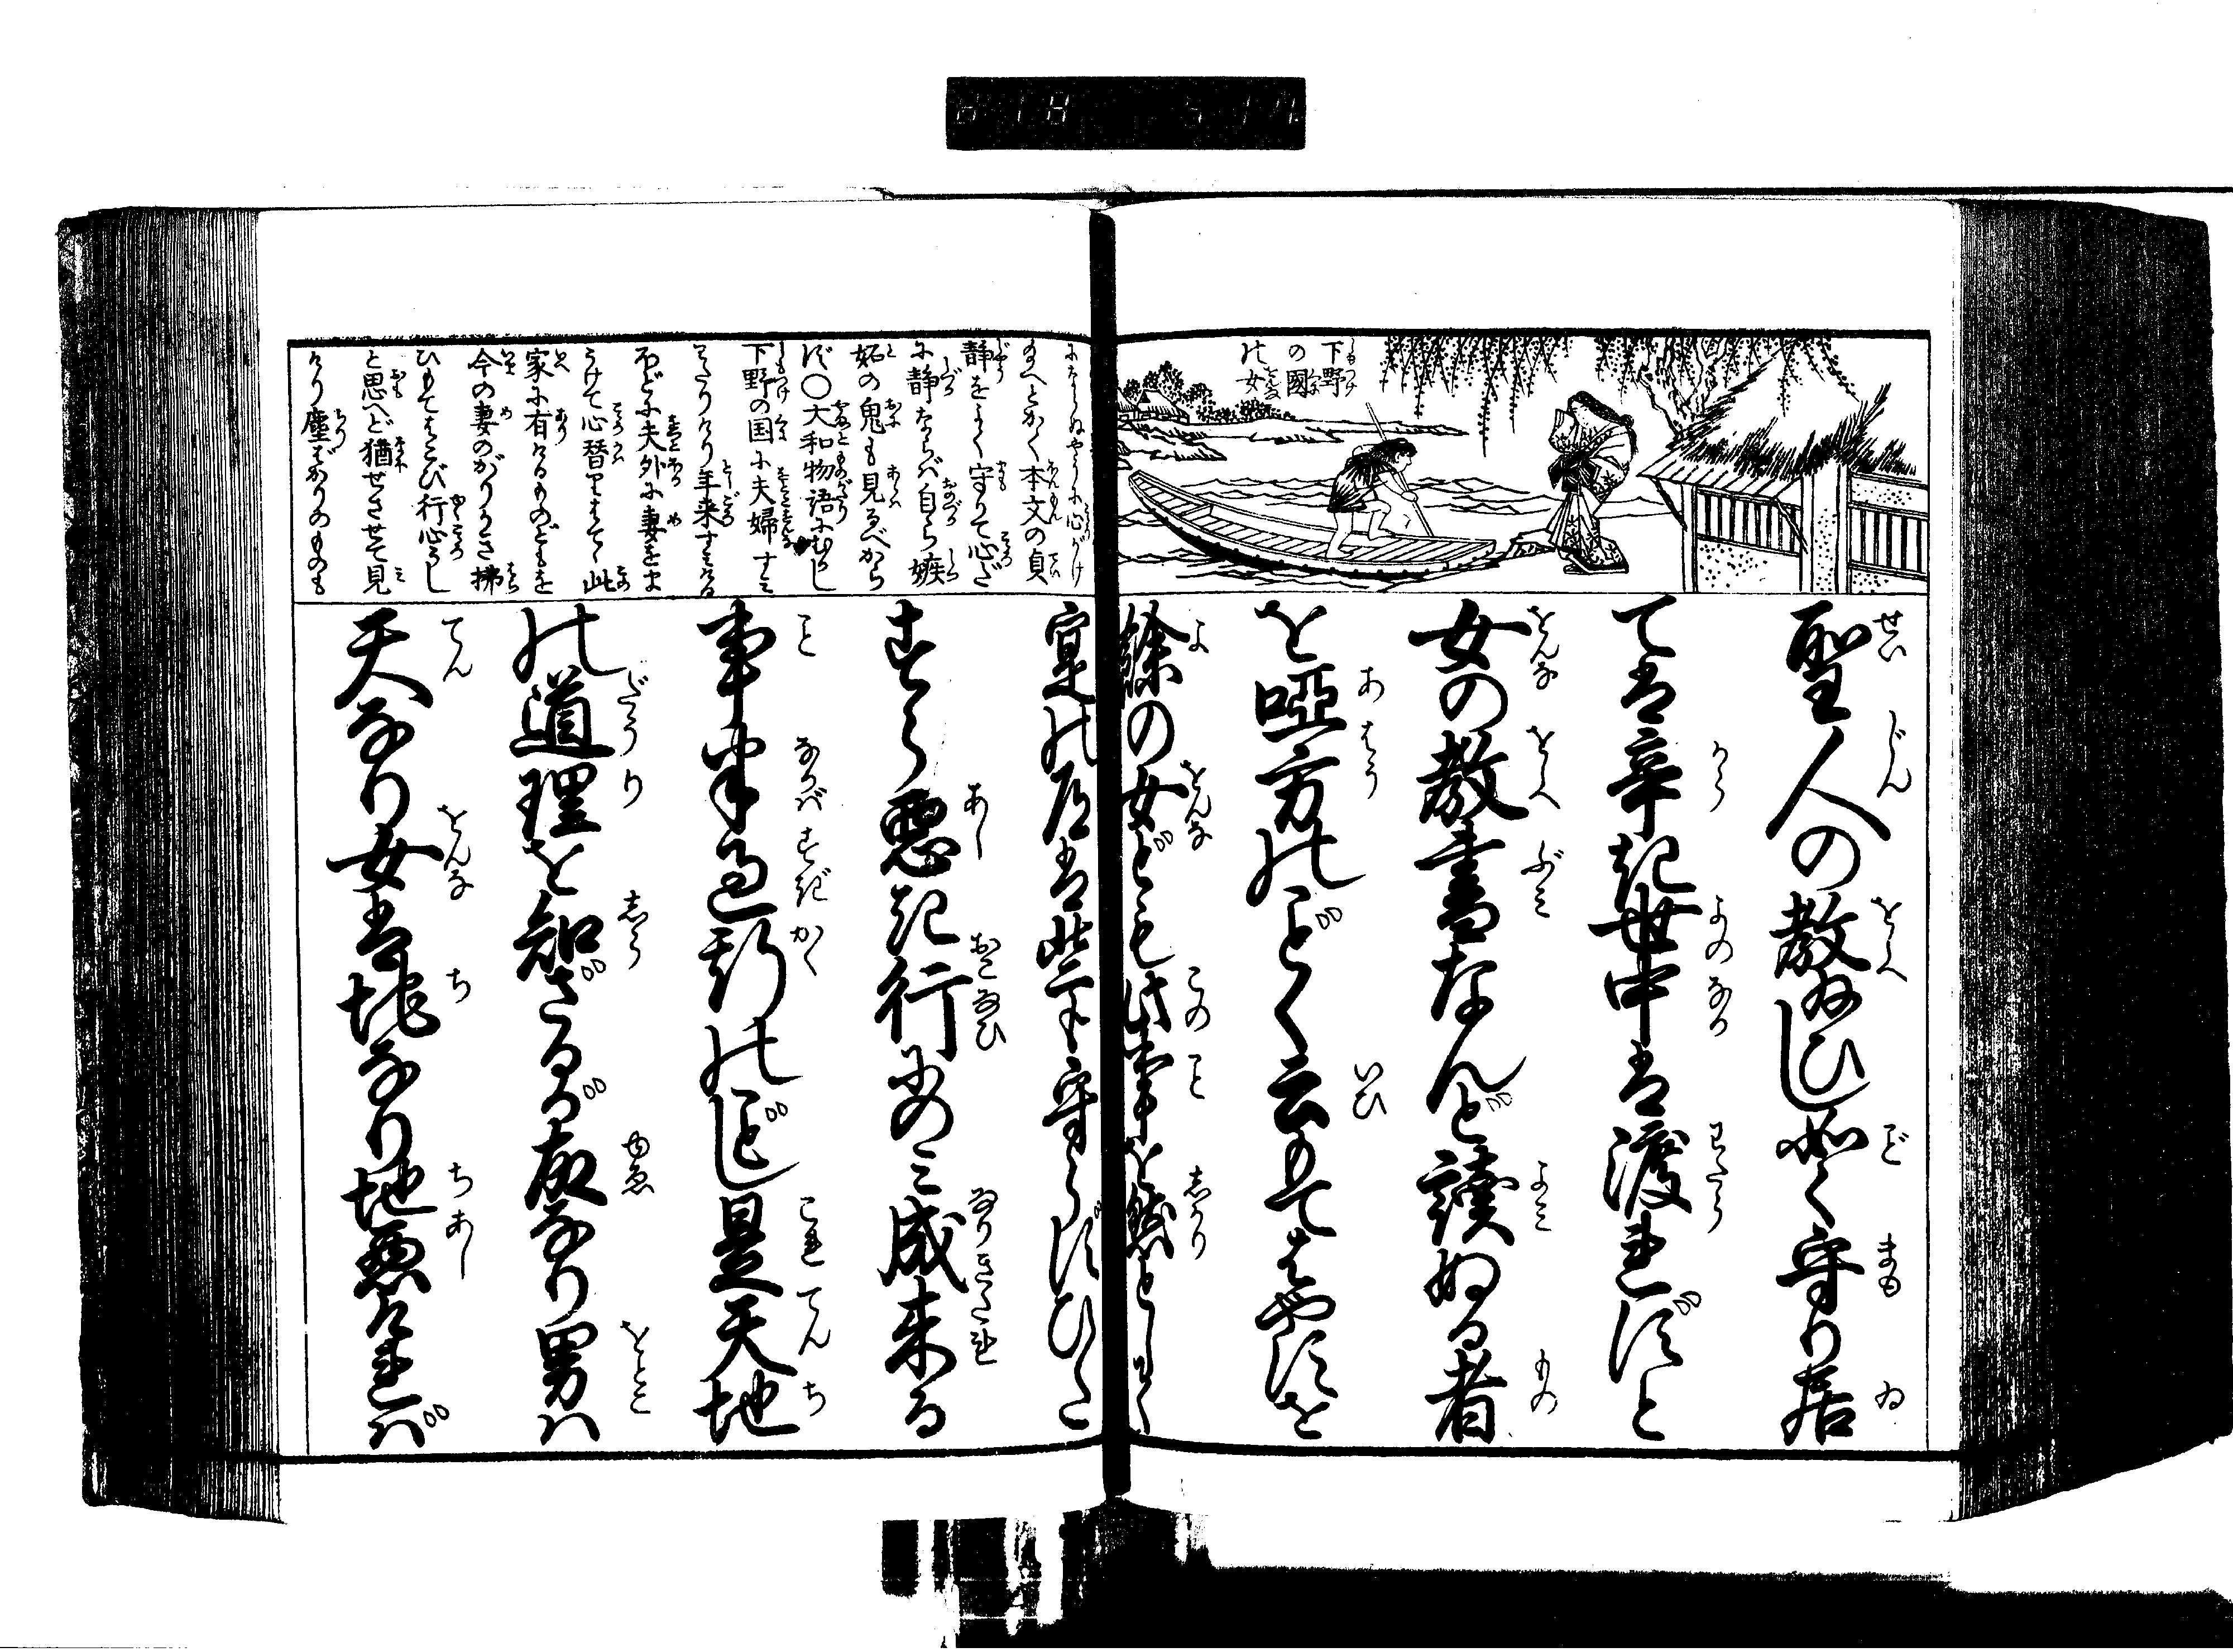 下野
の國
の女
聖人の教給ひし如く守り居
ては辛き世中は渡れずと
女の教書なんど讀ぬる者
を啞方のごとく云もてはやすを
餘の女ども此事を然としわく
定の力は些も守らずひた
すら悪き行のみ成来る
事半過斯のごとし是天地
の道理を知ざるが故なり男ハ
天なり女は地なり地悪ければ
にならぬやうに心がけ
給へとかく本文の貞
静をよく守りて心だ
に静ならば自ら嫉
妬の鬼も見るべから
ず〇大和物語にむかし
下野の国に夫婦すミ
わたりけり年来すミける
ほどに夫外に妻をま
うけて心替りはてゝ此
家に有けるものどもを
今の妻のがりかき拂
ひもてはこび行心うし
と思へど猶せさせて見
けり塵ばかりのものも